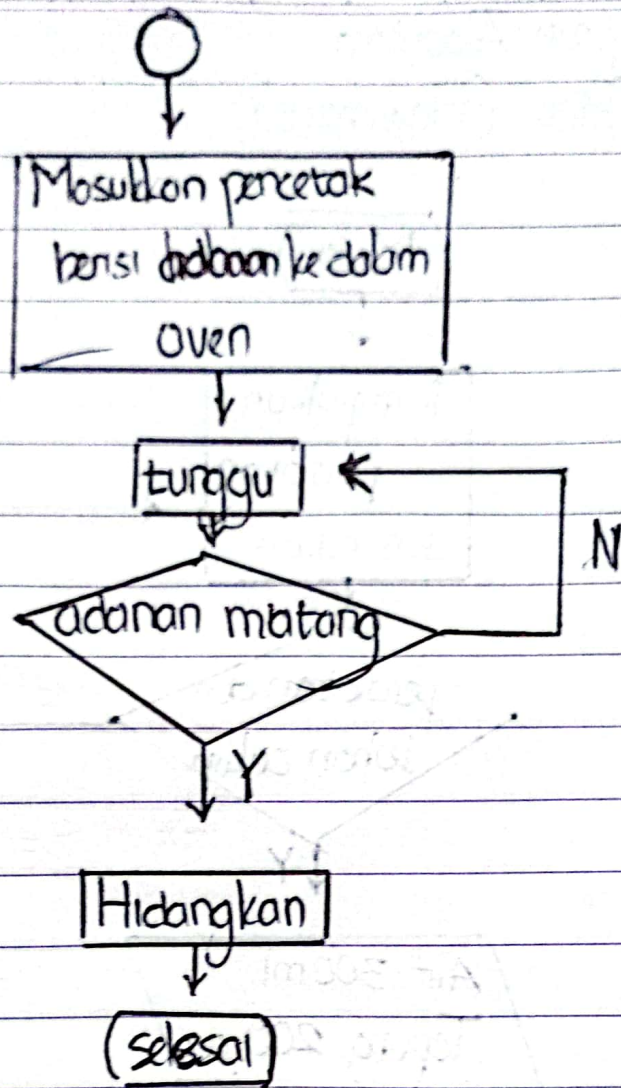 Masukkan pencetak
berisi adanan ke dalam
oven
tunggu
N
adanan matang
Y
Hidangkan
selesai